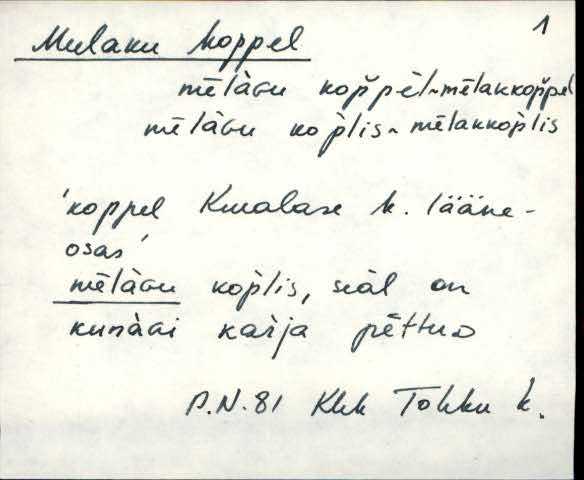 Mulaku koppel
1
mēlàGu kop̌pèl ~ mēlakkop̌pel
mēlàGu kop̀lis ~ mēlakkop̀lis
'koppel Kuralase k. lääne-
osas'
mēlàGu kop̀lis, seàl on
kunàGi kařja pēttuD
P.N. 81 Khk Tohku k.